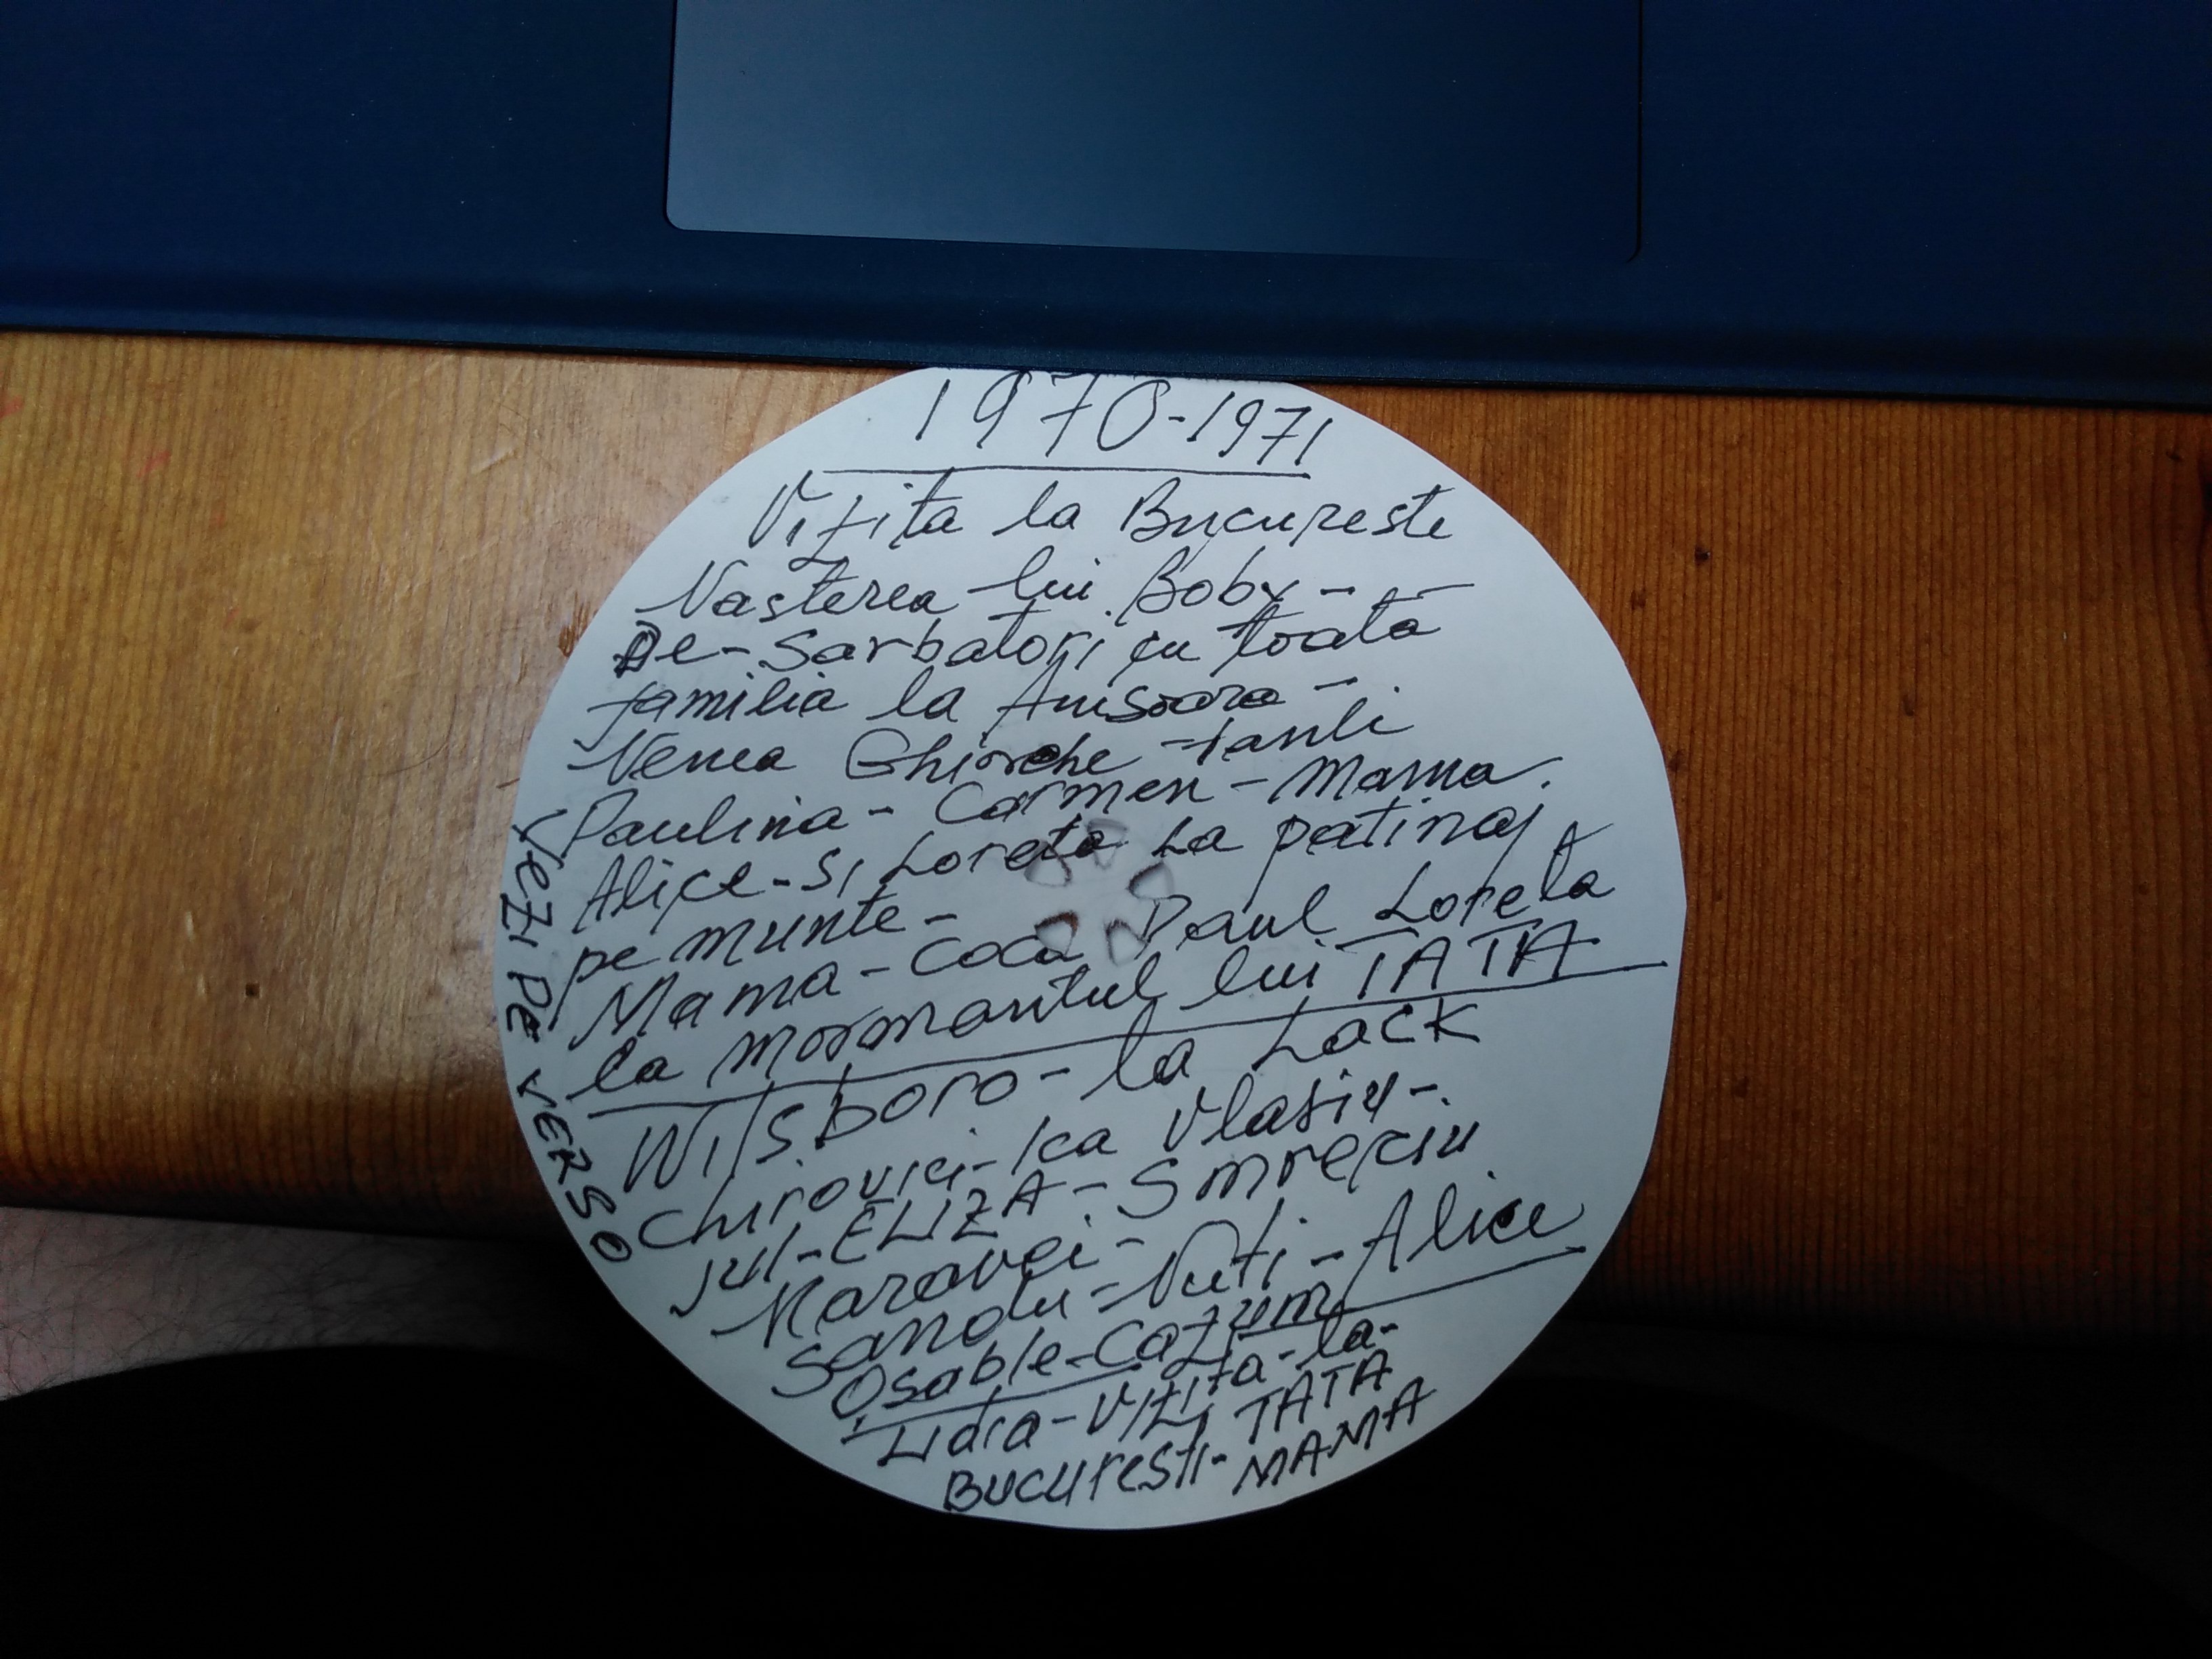 1970-1971
Vizita la Bucureste
Nasterea lui Boby - -
De-Sarbatori cu toata
familia la Anisoara -
Nenea Ghiorche - tanti
Paulina - Carmen - Mama.
Alice - si Loreta La patinaj
pe munte -
Mama - Coca Paul Loreta
la mormantul lui TATA
Wilsboro - la Lack
Chirovici - Ica Vlasiu -
Jul - ELIZA -
Maravei -
Sandu - Nuti - Alice
Osable - Cazum
Lidia - Vizita - la -
Bucuresti - TATA
MAMA
VEZI PE VERSO